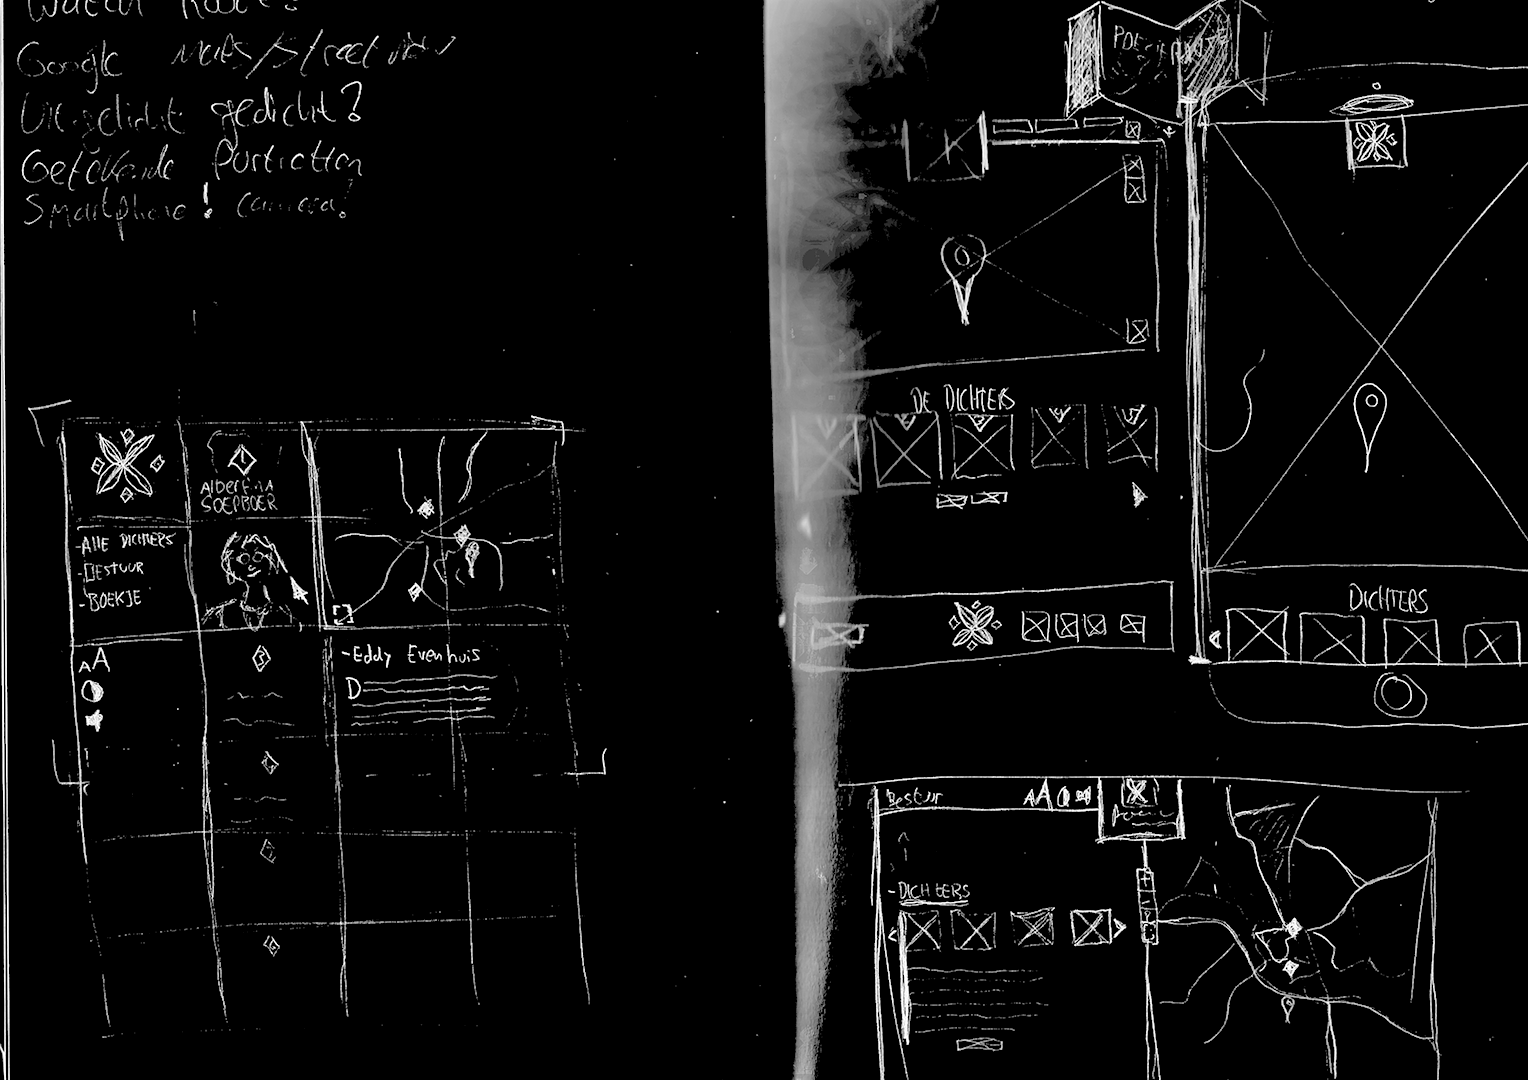 Google Maps/Street view
Uitgelicht gedicht?
Getekende Portretten
Smartphone! camera!
Albertina
SOEPBOER
-ALLE DICHTERS
-BESTUUR
-BOEKJE
AA
-Eddy Evenhuis
D
DE DICHTERS
DICHTERS
Bestuur
AA
-DICHTERS